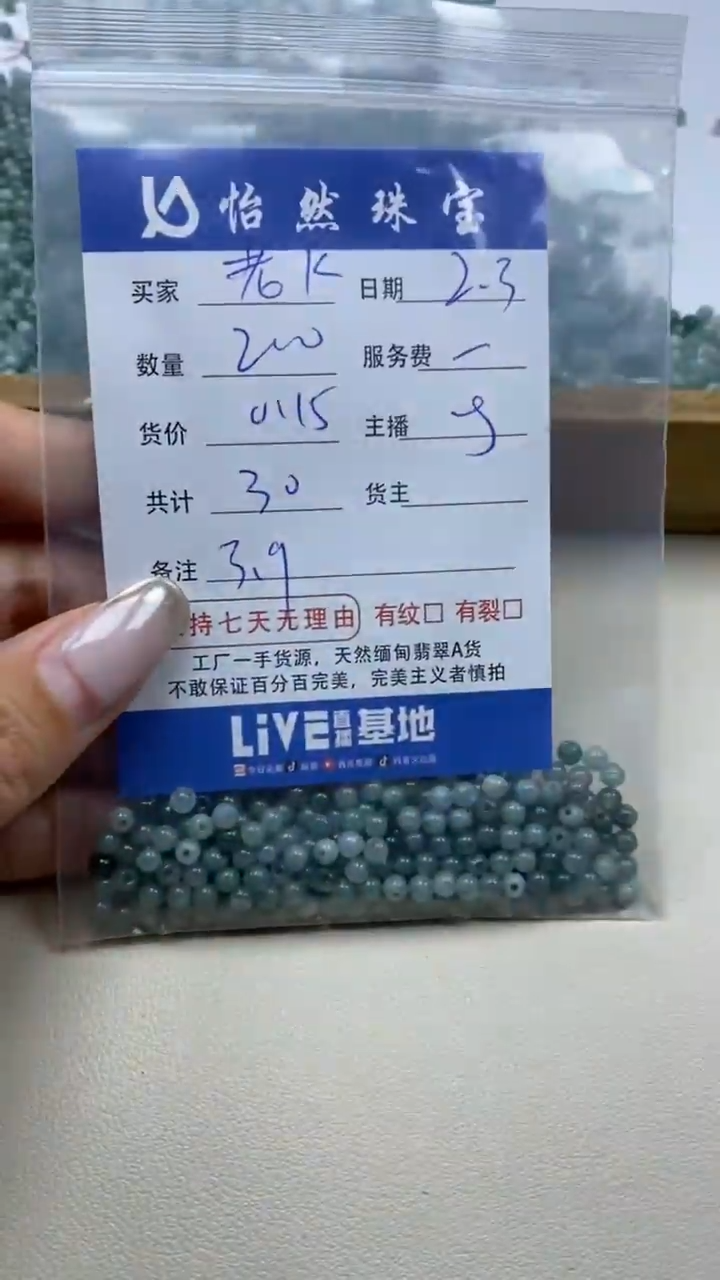 怡然珠宝
买家 老K 日期 2.3
数量 200 服务费 一
货价 0.15 主播
共计 30 货主
备注 3.9
持七天无理由 有纹□ 有裂□
工厂一手货源，天然缅甸翡翠A货
不敢保证百分百完美，完美主义者慎拍
LiVE直播基地